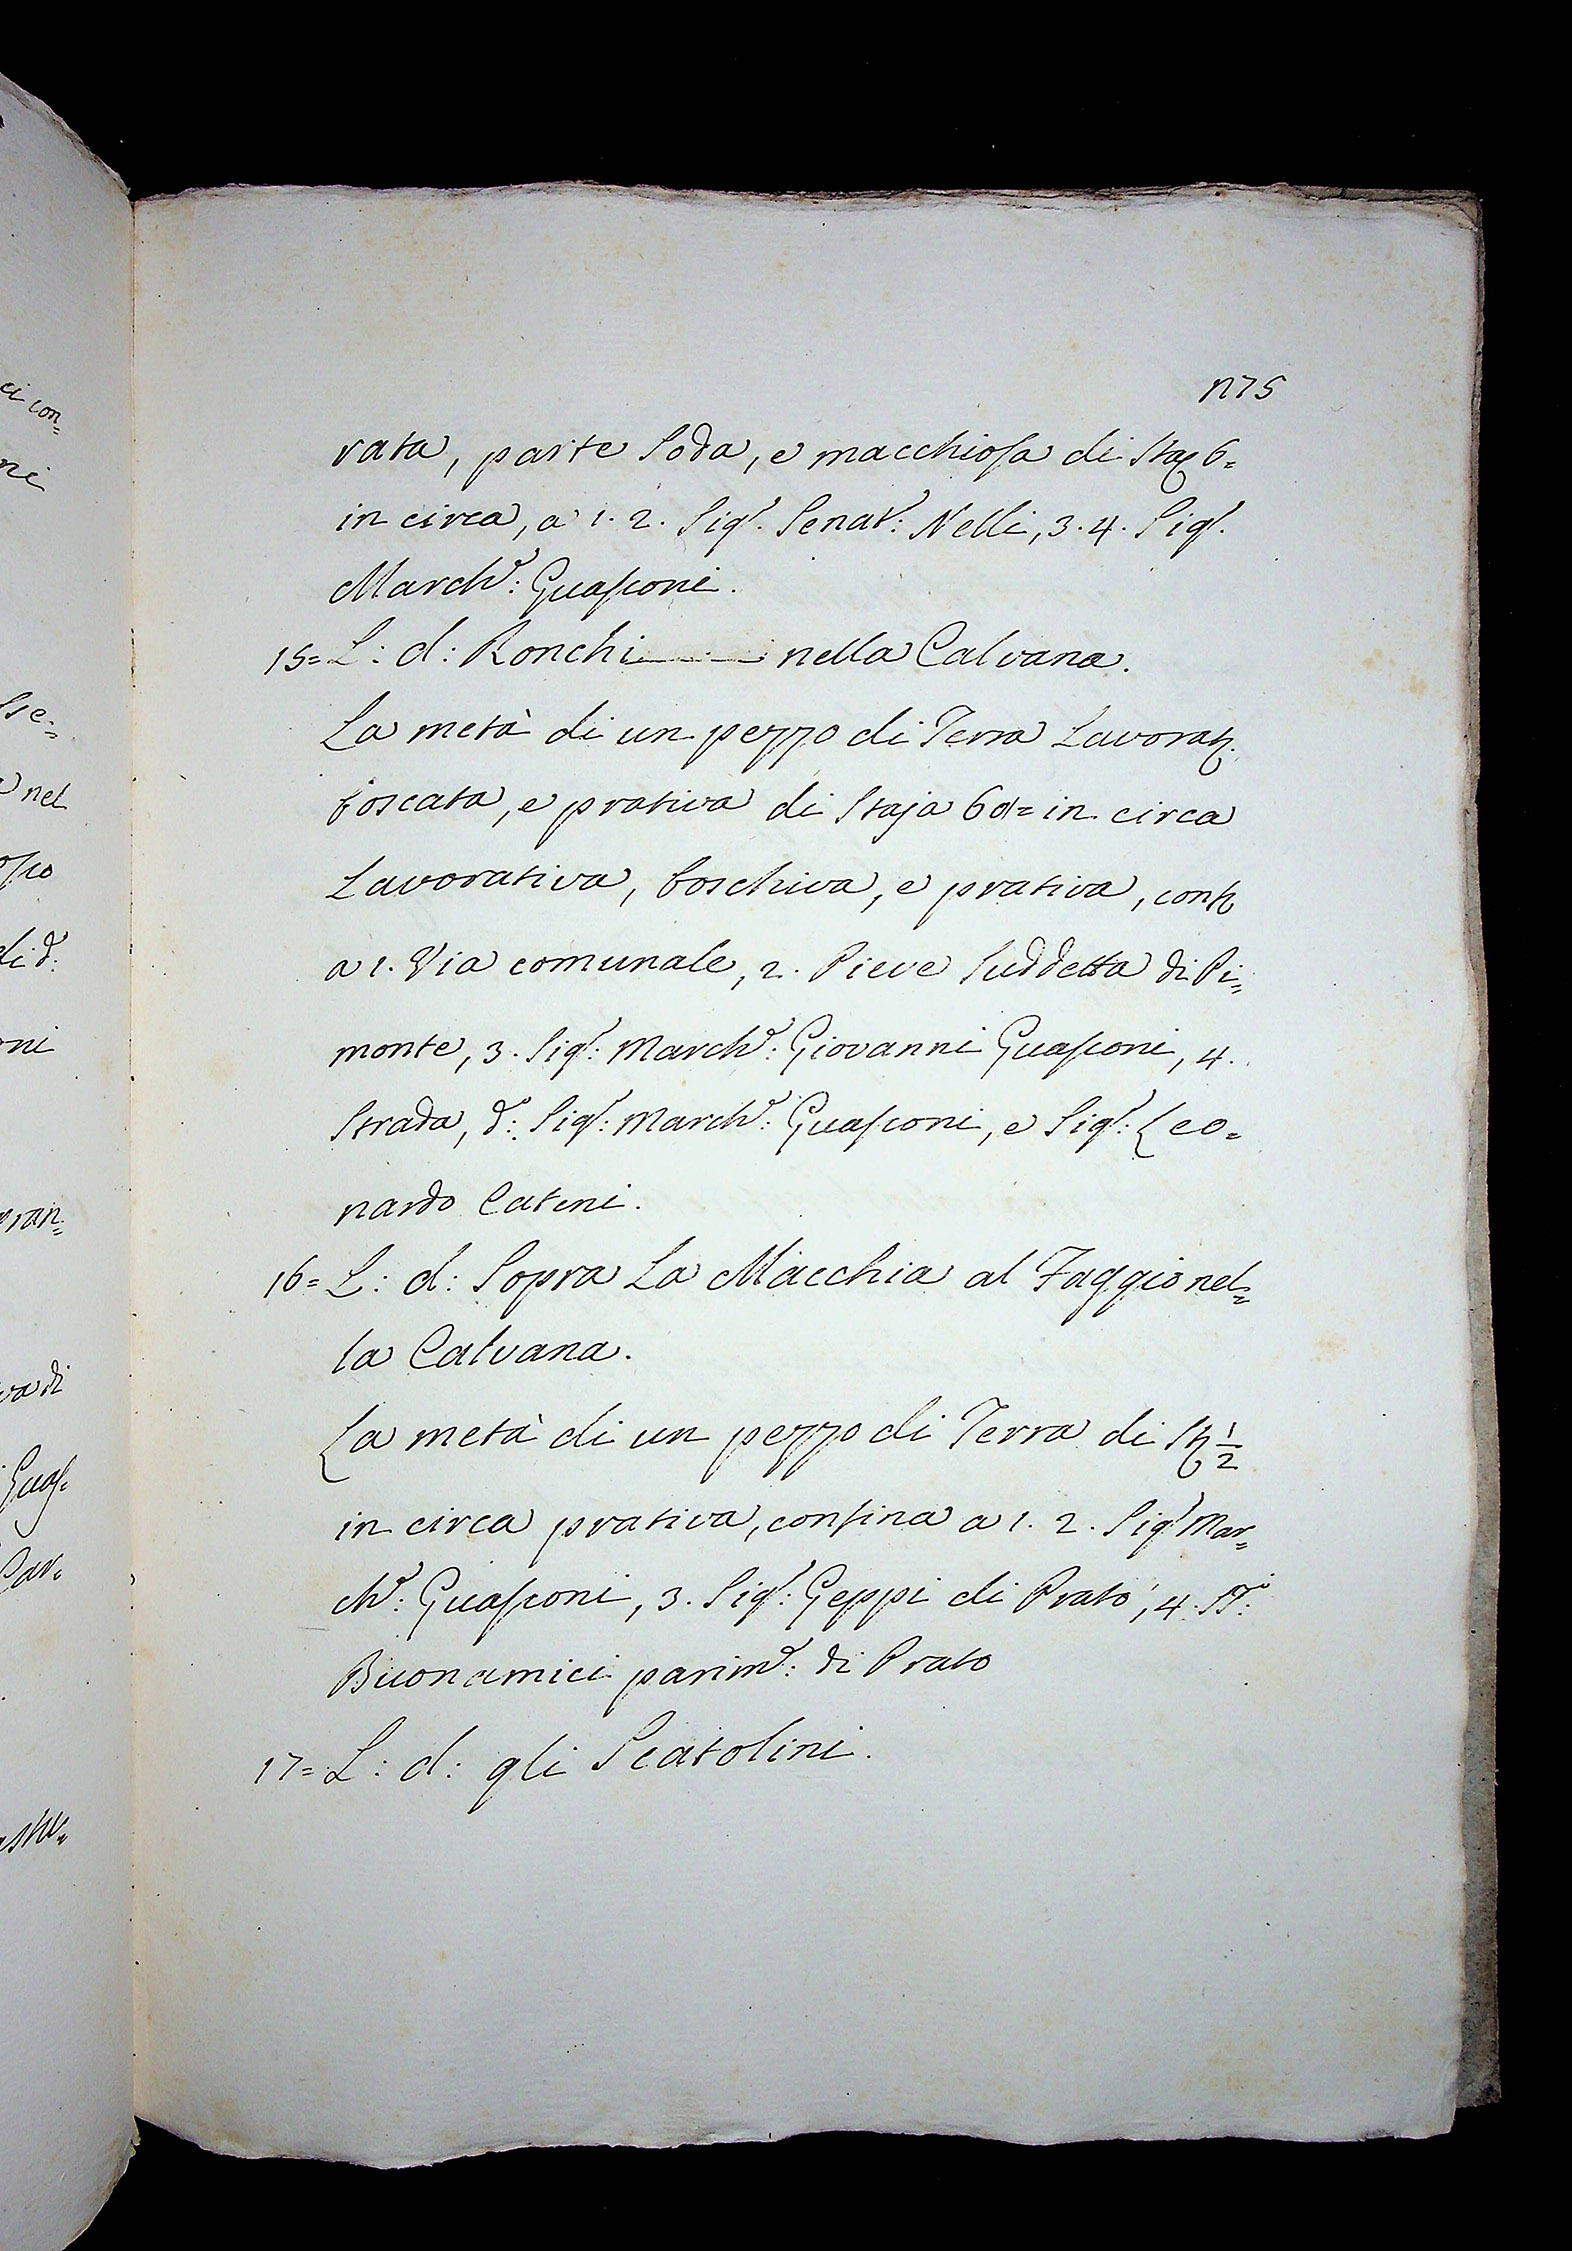 n75
rata, parte Soda, e macchiosa di Staj 6=
in circa, a 1. 2. Sigr. Senatr: Nelli, 3. 4. Sigr.
Marche: Guasconi.
15= L: d: Ronchi nella Calvana.
La metà di un pezzo di Terra Lavorat.
boscata, e prativa di Staja 60= in circa
Lavorativa, boschiva, e prativa, conf
a 1. Via comunale, 2. Pieve Suddetta di Pi=
monte, 3. Sigr: Marche: Giovanni Guasconi, 4.
Strada, do: Sigr: Marche: Guasconi, e Sigr: Leo=
nardo Catini.
16= L: d: Sopra La Macchia al Faggio nel=
la Calvana.
La metà di un pezzo di Terra di St 1/2
in circa prativa, confina a 1. 2. Sigr Mar=
che: Guasconi, 3. Sigr: Geppi di Prato, 4. SSri:
Buonamici parime: di Prato
17= L: d: gli Scatolini.
ci con=
ni
sse=
nel
osco
di do:
oni
ran=
va di
Guas.
Car.